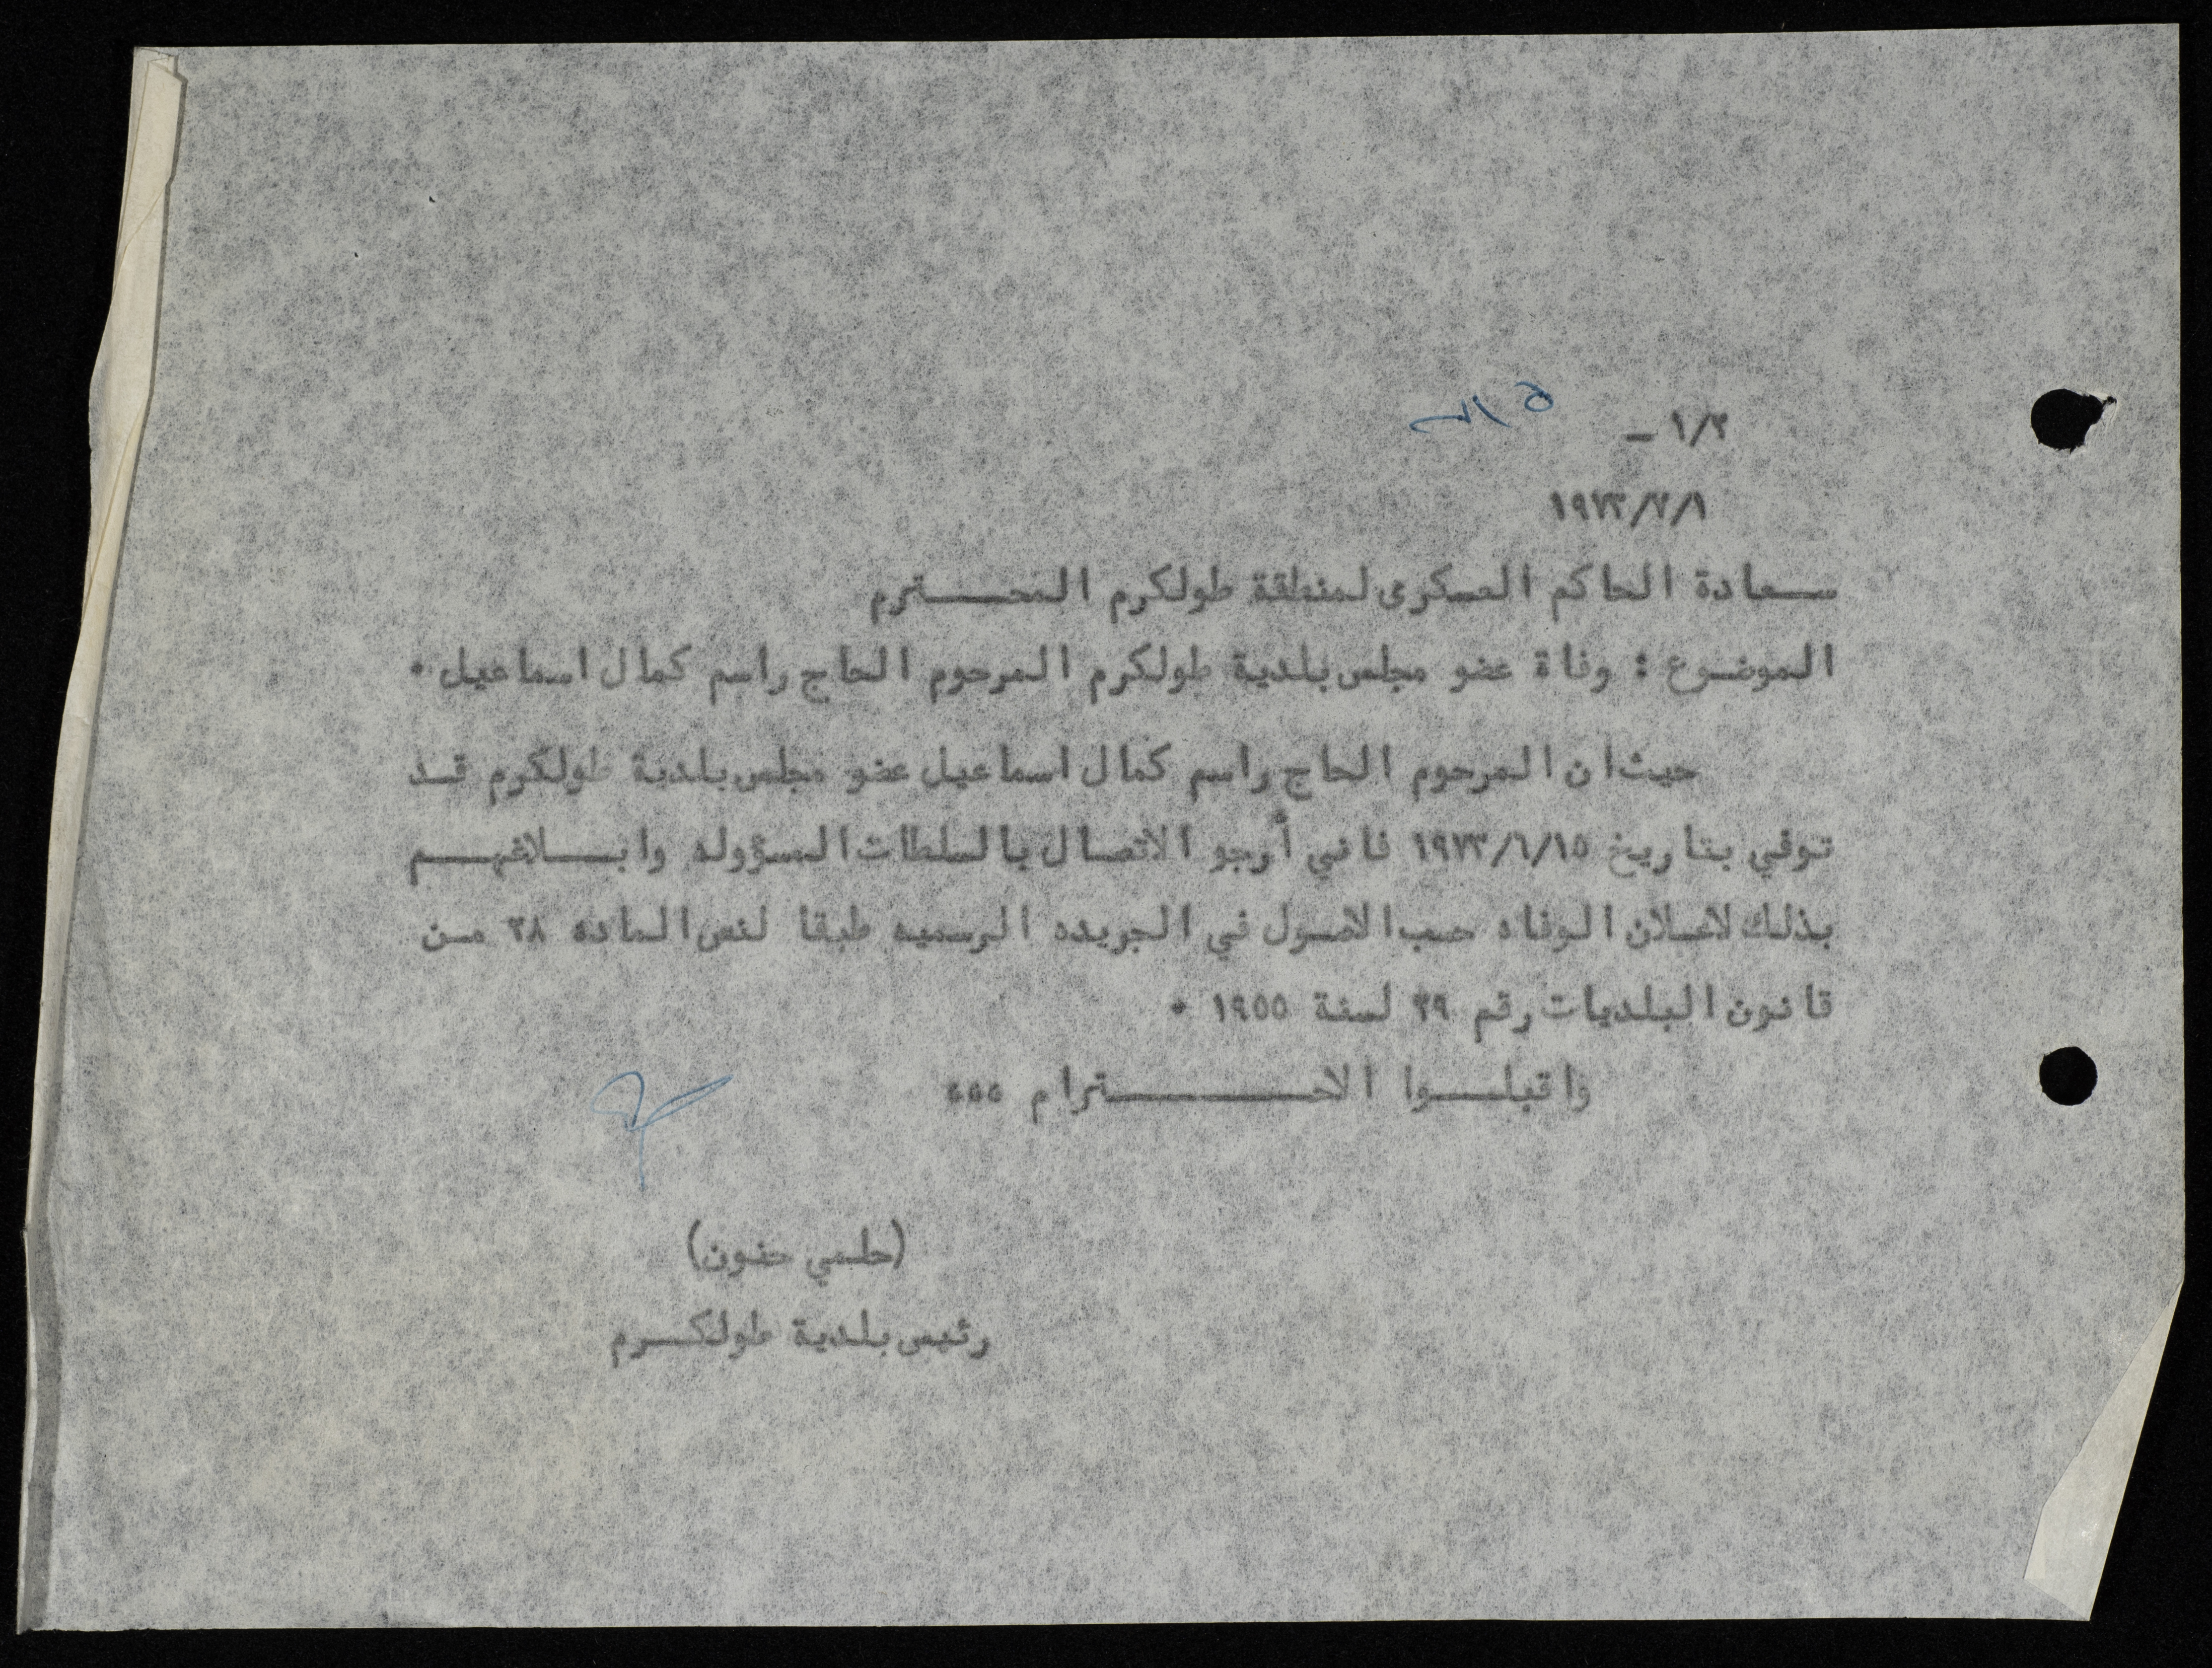 ١/٢ –
١٩٧٣/٧/١
سعادة الحاكم العسكرى لمنطقة طولكرم المحترم
الموضوع : وفاة عضو مجلس بلدية طولكرم المرحوم الحاج راسم كمال اسماعيل ٠
حيث ان المرحوم الحاج راسم كمال اسماعيل عضو مجلس بلدية طولكرم قد
توفي بتاريخ ١٩٧٣/٦/١٥ فانني أرجو الاتصال بالسلطات المسؤوله وابلاغهم
بذلك لاعلان الوفاه حسب الاصول في الجريده الرسميه طبقا لنص الماده ٣٨ من
قانون البلديات رقم ٢٩ لسنة ١٩٥٥ ٠
واقبلوا الاحترام ٥٥٥
(حلمي حنون)
رئيس بلدية طولكرم